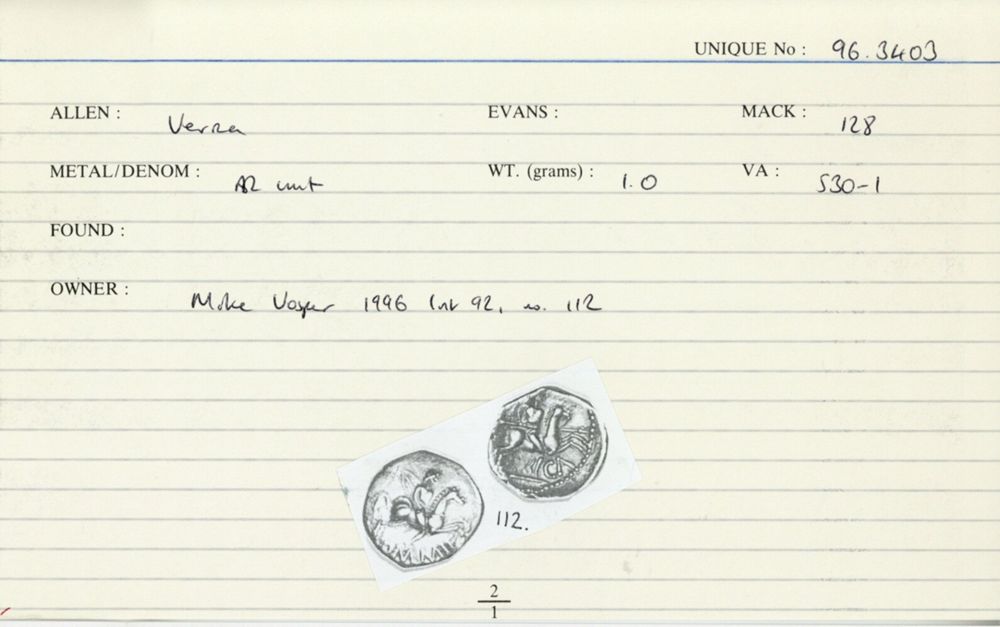 UNIQUE No : 96.3403
ALLEN : Verica EVANS : MACK : 128
METAL/DENOM : AR unit WT. (grams) : 1.0 VA : 530-1
FOUND :
OWNER : Mike Vosper 1996 list 92, no. 112
112.
2
1